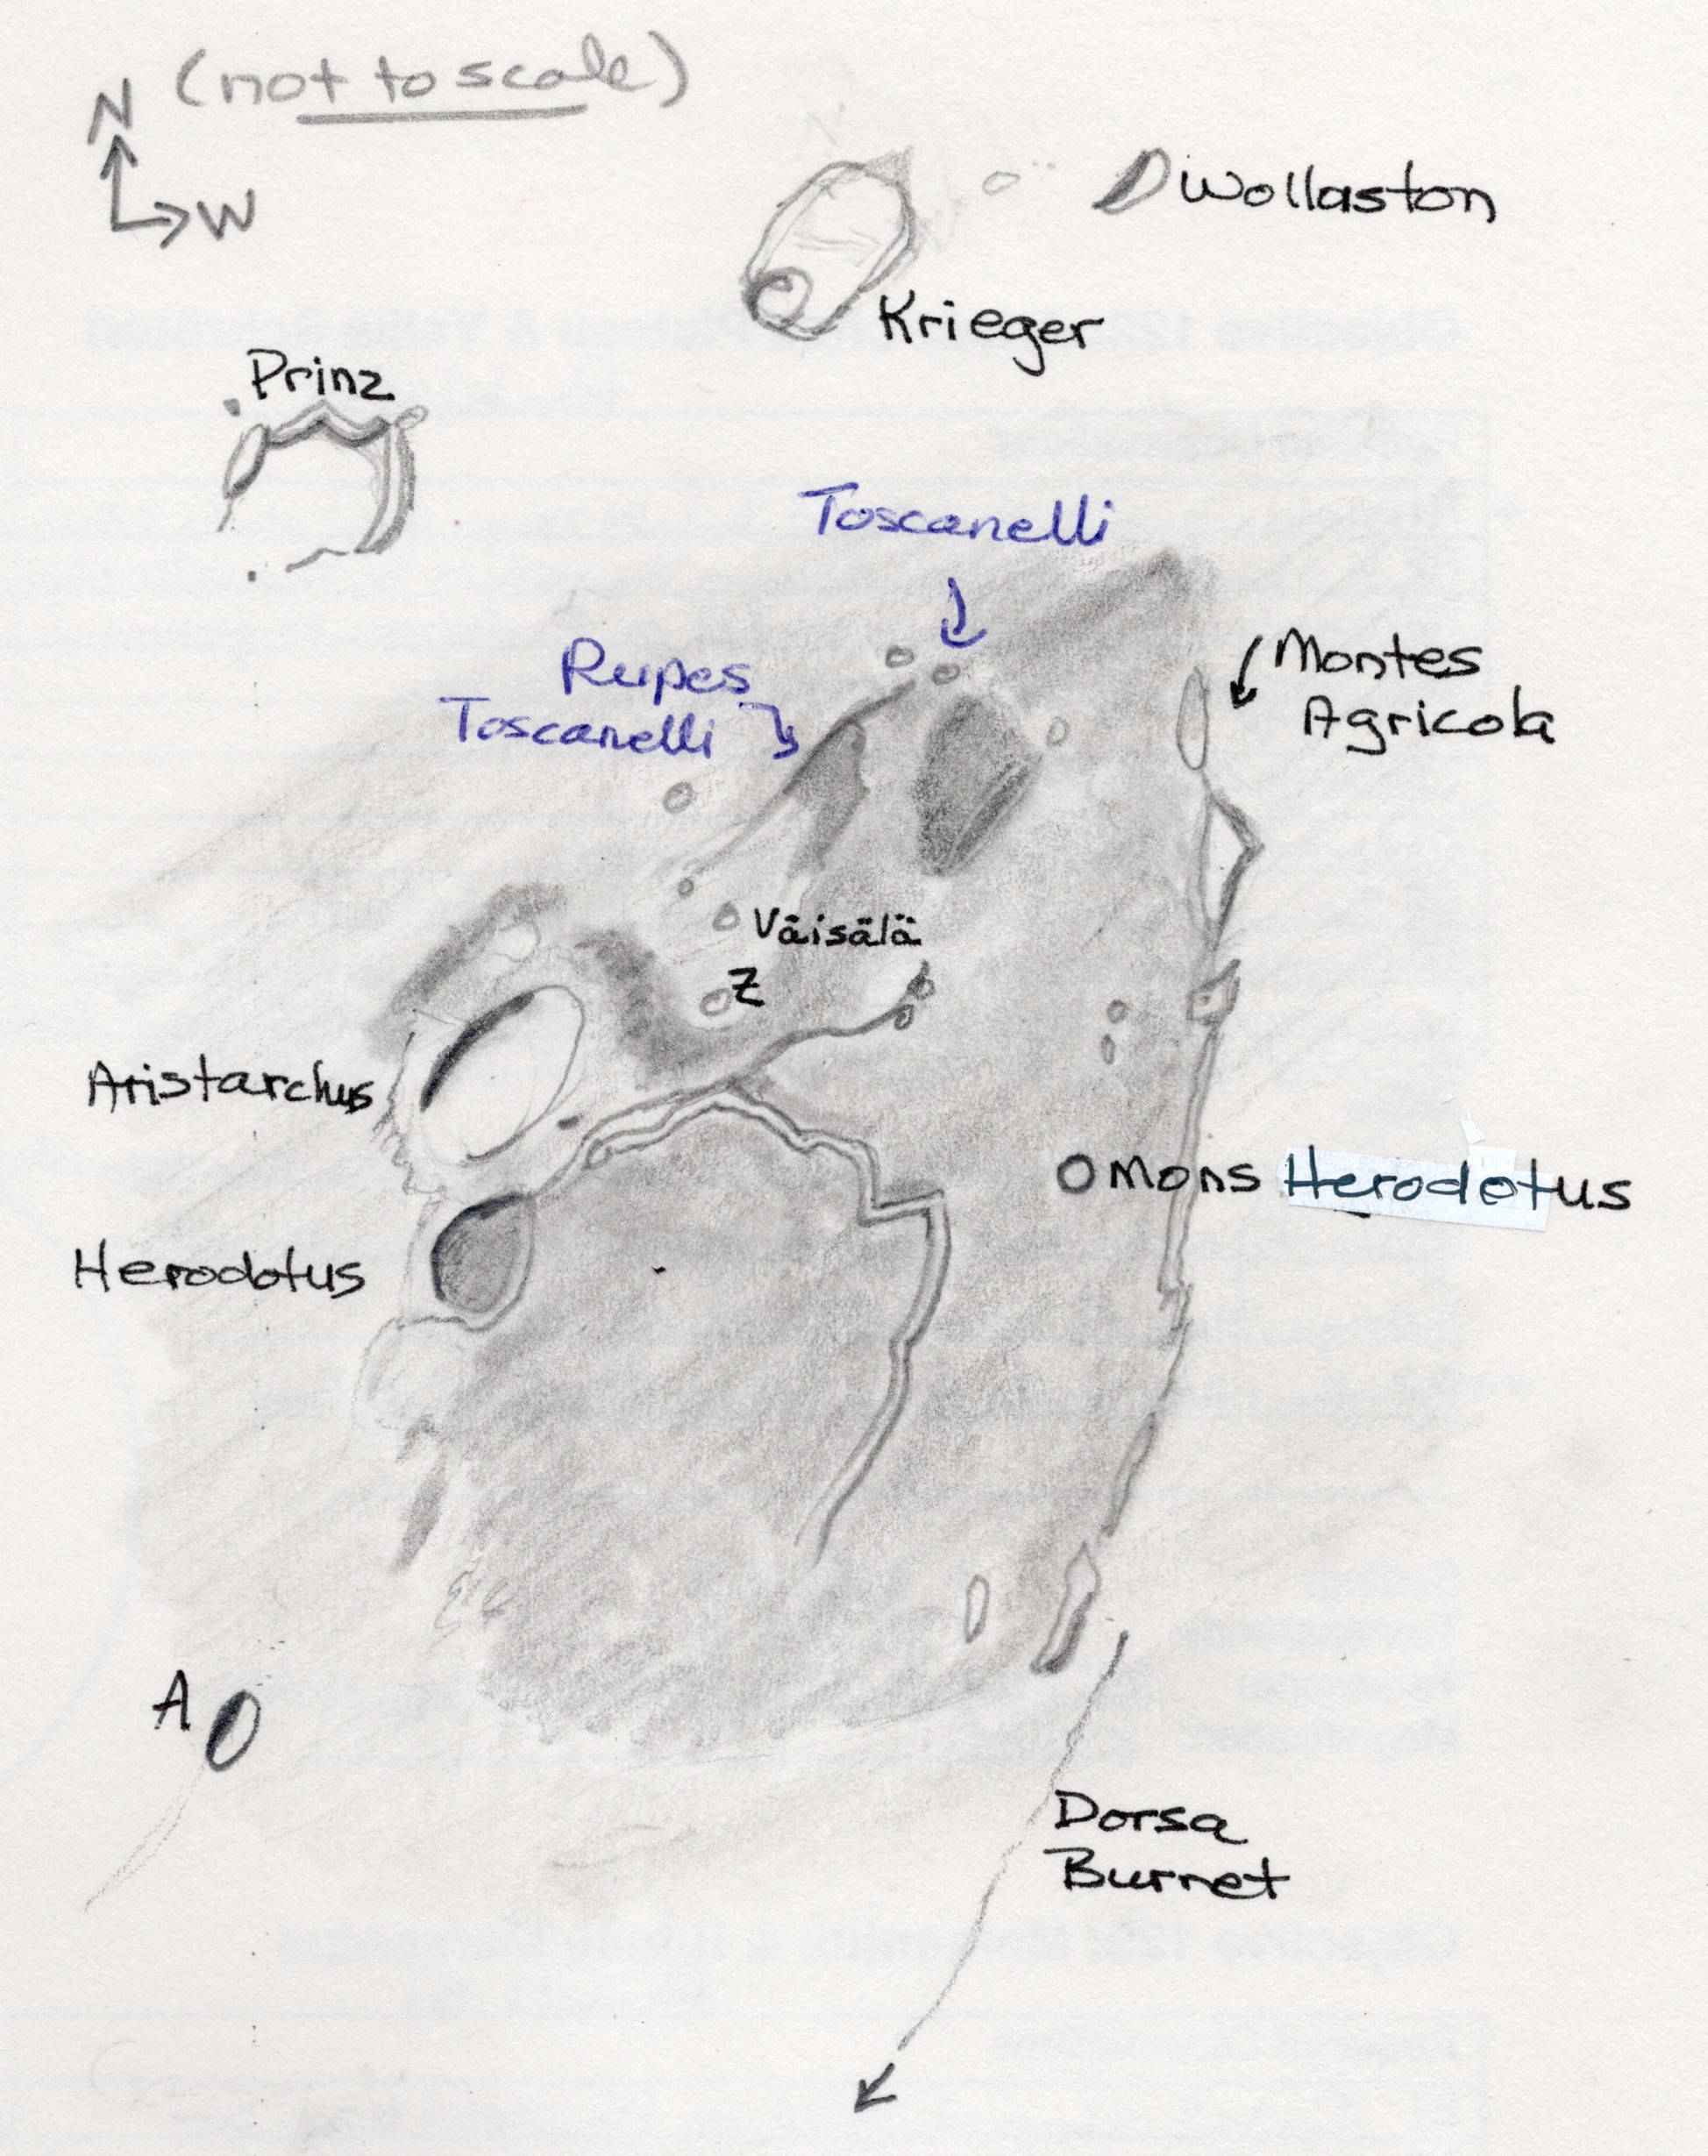 (not to scale)
N
W
Wollaston
Krieger
Prinz
Toscanelli
Rupes
Toscanelli
Montes
Agricola
Väisälä
Z
Aristarchus
Mons Herodotus
Herodotus
A
Dorsa
Burnet